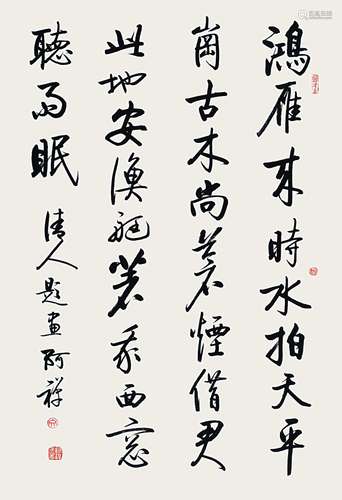 鴻雁來時水拍天平
崗古木尚蒼煙借君
此地安漁艇著我西窓
聽雨眠
清人題畫阿祥